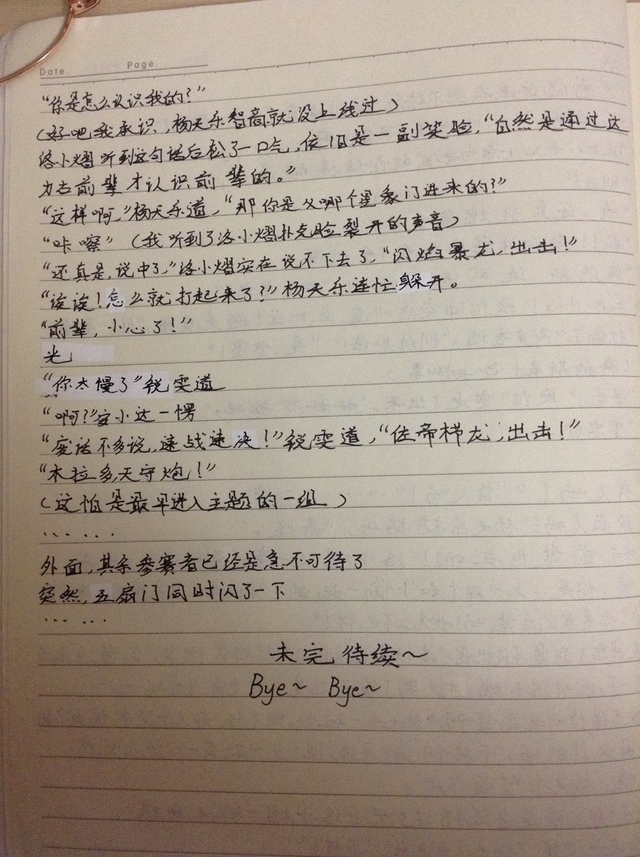 Date. Page.
“你是怎么认识我的？”
（好吧我承认，杨天乐智商就没上线过）
洛小熠听到这句话后松了一口气，依旧是一副笑脸，“自然是通过达
力古前辈才认识前辈的。”
“这样啊，”杨天乐道，“那你是从哪个星象门进来的？”
“咔嚓”（我听到了洛小熠扑克脸裂开的声音）
“还真是，说中了，”洛小熠实在说不下去了，“闪焰暴龙，出击！”
“诶诶！怎么就打起来了？”杨天乐连忙躲开。
“前辈，小心了！”
光
“你太慢了”锐雯道
“啊？”安小达一愣
“废话不多说，速战速决！”锐雯道，“佐帝梯龙，出击！”
“木拉多天守炮！”
（这怕是最早进入主题的一组）
……
外面，其余参赛者已经是急不可待了
突然，五扇门同时闪了一下
……
未完待续~
Bye~ Bye~